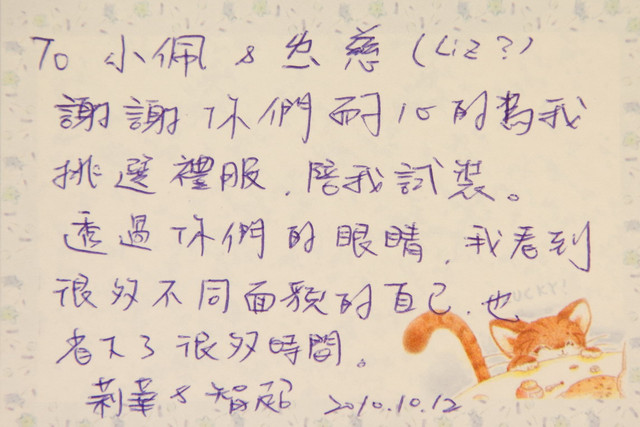 To 小佩 & 思慈 (Liz?)
謝謝你們耐心的為我
挑選禮服，陪我試裝。
透過你們的眼睛，我看到
很多不同面貌的自己，也
省下了很多時間。
莉華 & 智 2010.10.12
LUCKY!